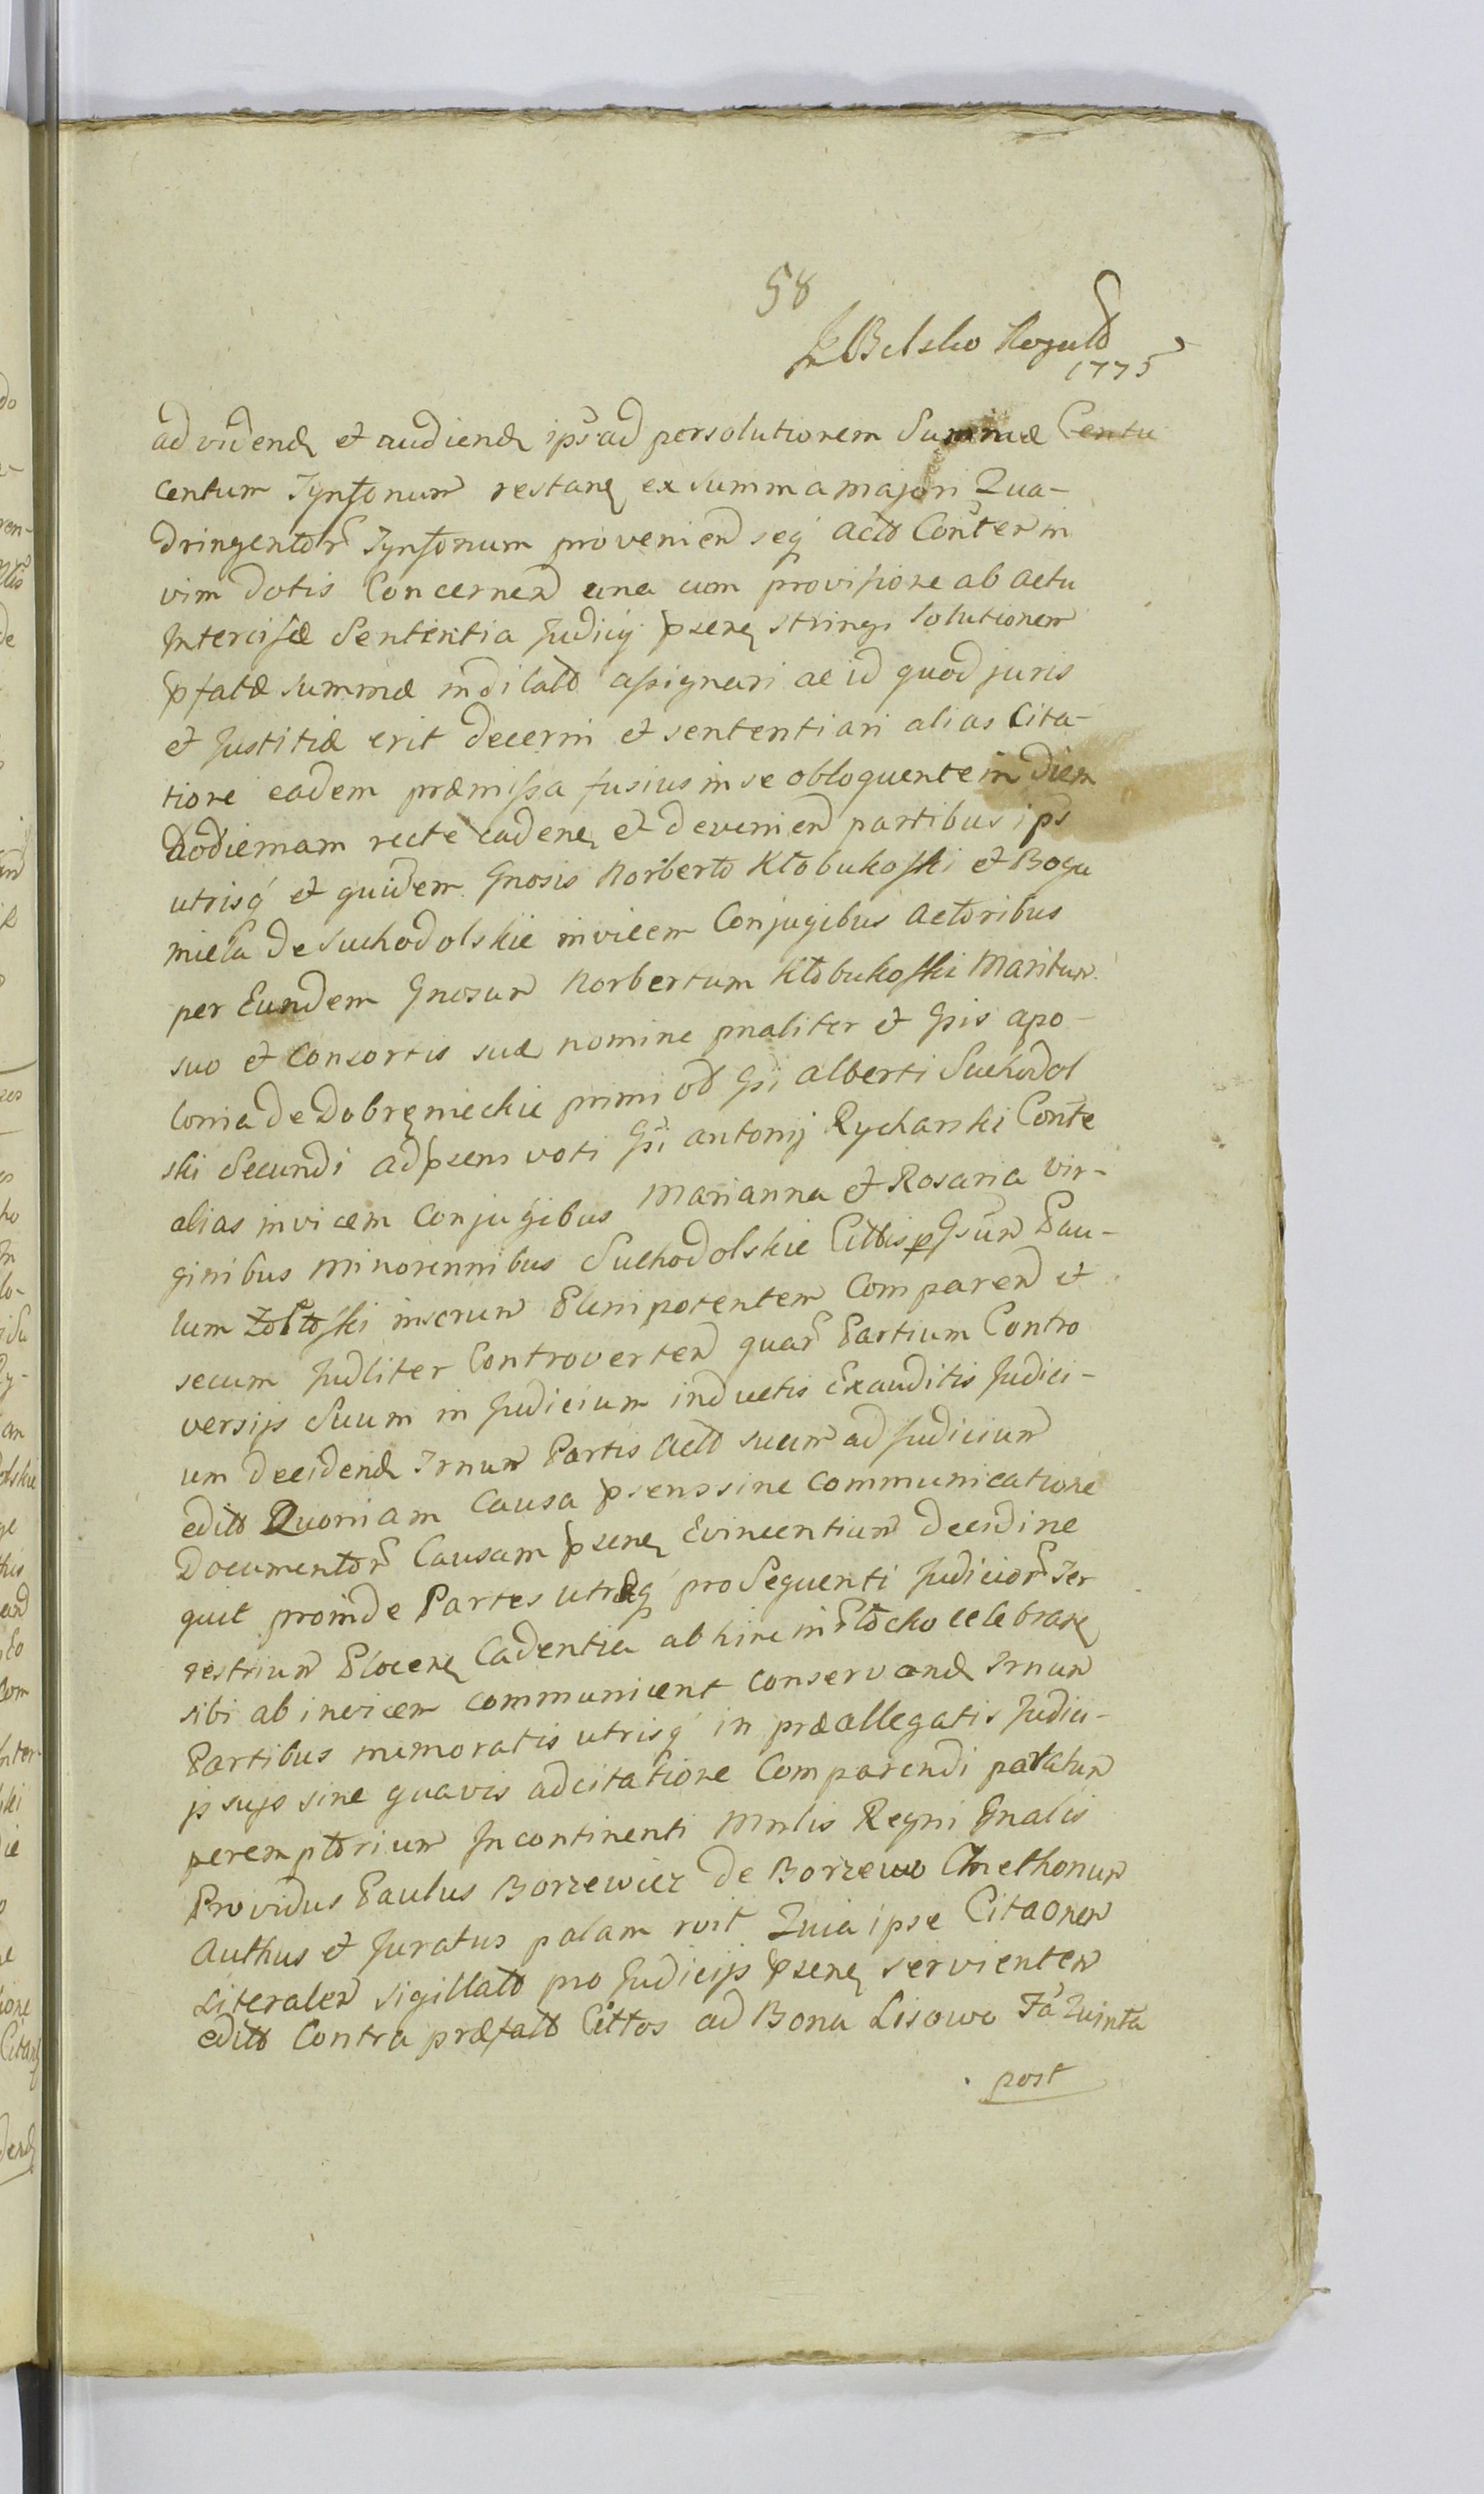 58
Belsko
1775
ad vidend et audiend ips ad persolutionem Summæ Centu
centum Tynfonum restan ex summa majori Qua-
dringentor Tynfonum provenien seq Acto Conter in
vim dotis Concernen una cum provisione ab actu
Intercisæ Sententia Judicij psen stringi solutionem
pfatæ summæ indilato assignari ac id quod juris
et Justitiæ erit decerni et sententiari alias Cita-
tione eadem præmissa fusius in se obloquente in diem
hodiernam recte caden et devenien partibus ips
utrisq et quidem Gnosis Norberto Kłobukoski et Bogu
miła de Suchodolskie invicem Conjugibus Actoribus
per Eundem Gnosum Norbertum Kłobukoski Maritum
suo et Consortis suæ nomine pnaliter et Gsis Apo-
lonia de Dobręnieckie primi ob Gsi Alberti Suchodol
ski Secundi ad psens voti Gsi Antonij Rycharski Conte
alias invicem Conjugibus Marianna et Rosaria Vir-
ginibus minorennibus Suchodolskie Cittis p Gsum Pau-
lum Zołtoski inscrum Plenipotentem Comparen et
secum Judliter Controverten quar Partium Contro
versijs Suum in Judicium inductis Exauditis Judici-
um decidend Trnum Partis Acto suum ad Judicium
edito Quoniam Causa psens sine Communicatione
Documentor Causam psen Evincentium decidi ne
quit proinde Partes utræq pro Sequenti Judicior Ter
restrium Plocen Cadentia ab hinc in Płocko celebran
sibi ab invicem communicent conservand Trnum
Partibus memoratis utrisq in præallegatis Judici-
js sujs sine quavis adcitatione Comparendi paratum
peremptorium Incontinenti Mnlis Regni Gnalis
Providus Paulus Borzewicz de Borzewo Cmethonum
Authus et Juratus palam roit Quia ipse Citaonem
Literalem sigillato pro Judicijs psen servientem
edito Contra præfato Cittos ad Bona Lisowo Fa Quinta
post